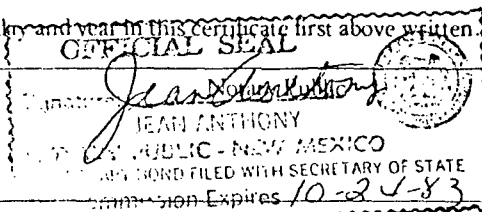 and year in this certificate first above written.
OFFICIAL SEAL
Signature Jean Anthony Notary Public
JEAN ANTHONY
PUBLIC - NEW MEXICO
BOND FILED WITH SECRETARY OF STATE
Expires 10-24-83